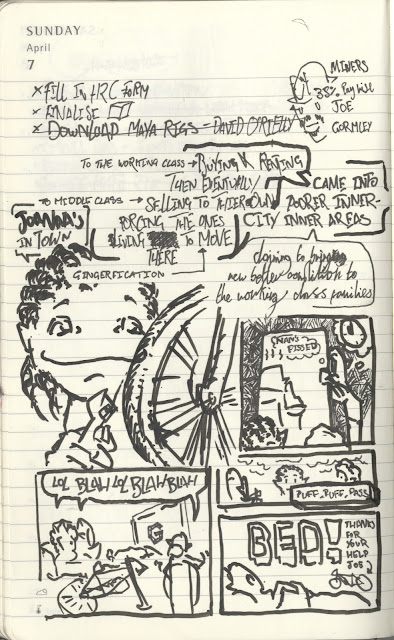 SUNDAY
April
7
MINERS
35% Pay Rise
JOE
GORMLEY
× FILL IN HRC FORM
× FINALISE
× DOWNLOAD MAYA RIGS - DAVID O'RIELLY
TO THE WORKING CLASS → BUYING OR RENTING
THEN EVENTUALLY
TO MIDDLE CLASS → SELLING TO THEIR OWN
FORCING THE ONES
LIVING TO MOVE
THERE
CAME INTO
POORER INNER-
CITY INNER AREAS
JOANNA'S
IN TOWN
GINGERFICATION
new better condition to
the working class families
BRIAN'S
PISSED
LOL BLAH LOL BLAH BLAH
G
PUFF, PUFF, PASS
BED!
THANKS
FOR
YOUR
HELP